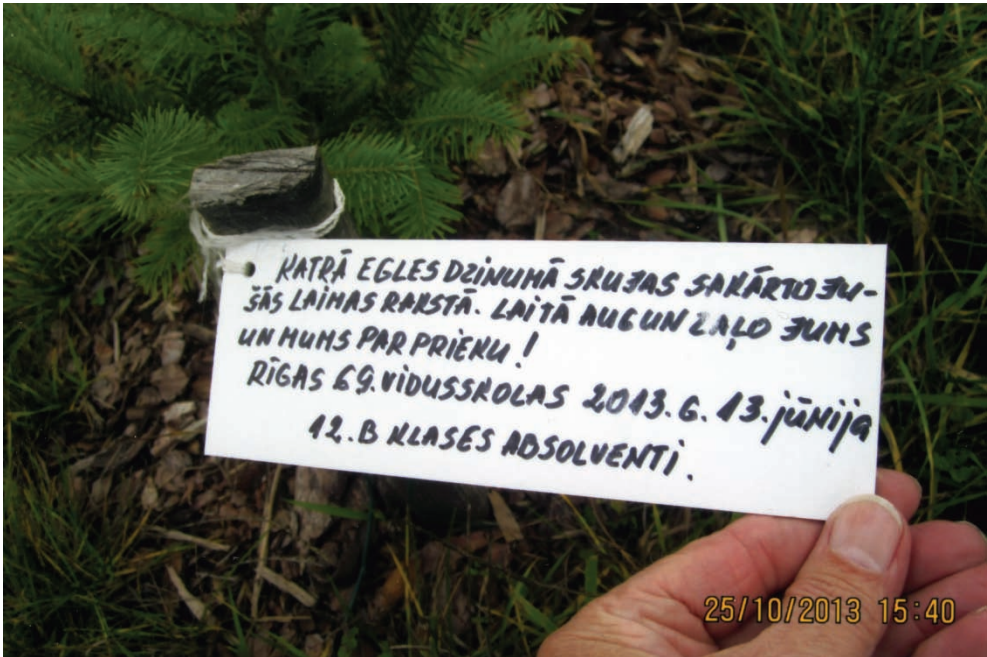 KATRĀ EGLES DZINUMĀ SKUJAS SAKĀRTOJU-
ŠĀS LAIMAS RAKSTĀ. LAI TĀ AUG UN ZAĻO JUMS
UN MUMS PAR PRIEKU!
RĪGAS 69. VIDUSSKOLAS 2013. G. 13. jūnija
12. B KLASES ABSOLVENTI.
25/10/2013 15:40